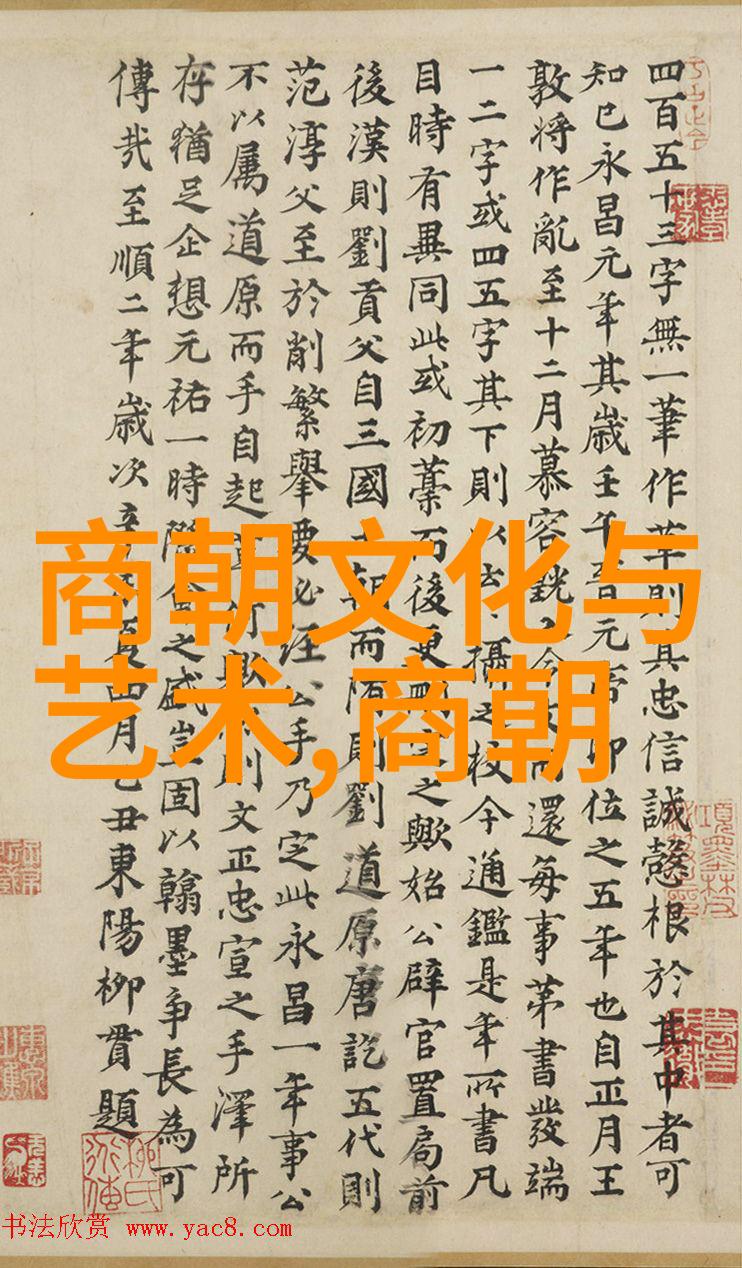 四百五十三字無一筆作草則其忠信誠慤根於其中者可
知已永昌元年其歲壬午晉元帝即位之五年也自正月王
敦將作亂至十二月慕容皝 而還每事第書發端
一二字或四五字其下則以 攝之校今通鑑是年所書凡
目時有異同此或初藁而後更 定之歟始公辟官置局前
後漢則劉貢父自三國 朝而隋則劉道原唐訖五代則
范淳父至於削繁舉要必經公手乃定此永昌一年事公
不以屬道原而手自起 何歟 則文正忠宣之手澤所
存猶足企想元祐一時際會之盛豈固以翰墨爭長為可
傳哉至順二年歲次辛 夏四月乙丑東陽柳貫題
商朝文化与
艺术,商朝
柳氏
书法欣赏 www.yac8.com